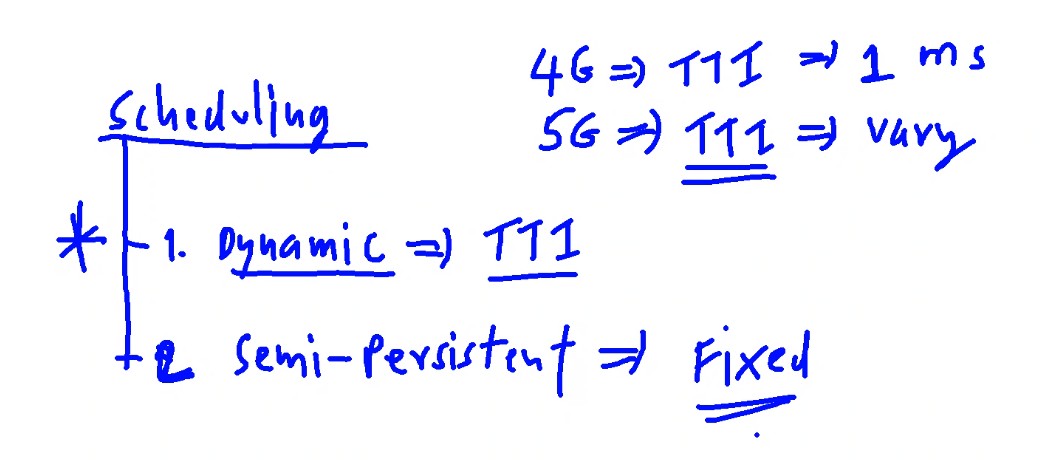 4G ⇒ TTI ⇒ 1 ms
5G ⇒ TTI ⇒ vary
Scheduling
* 1. Dynamic ⇒ TTI
2 Semi-Persistent ⇒ Fixed